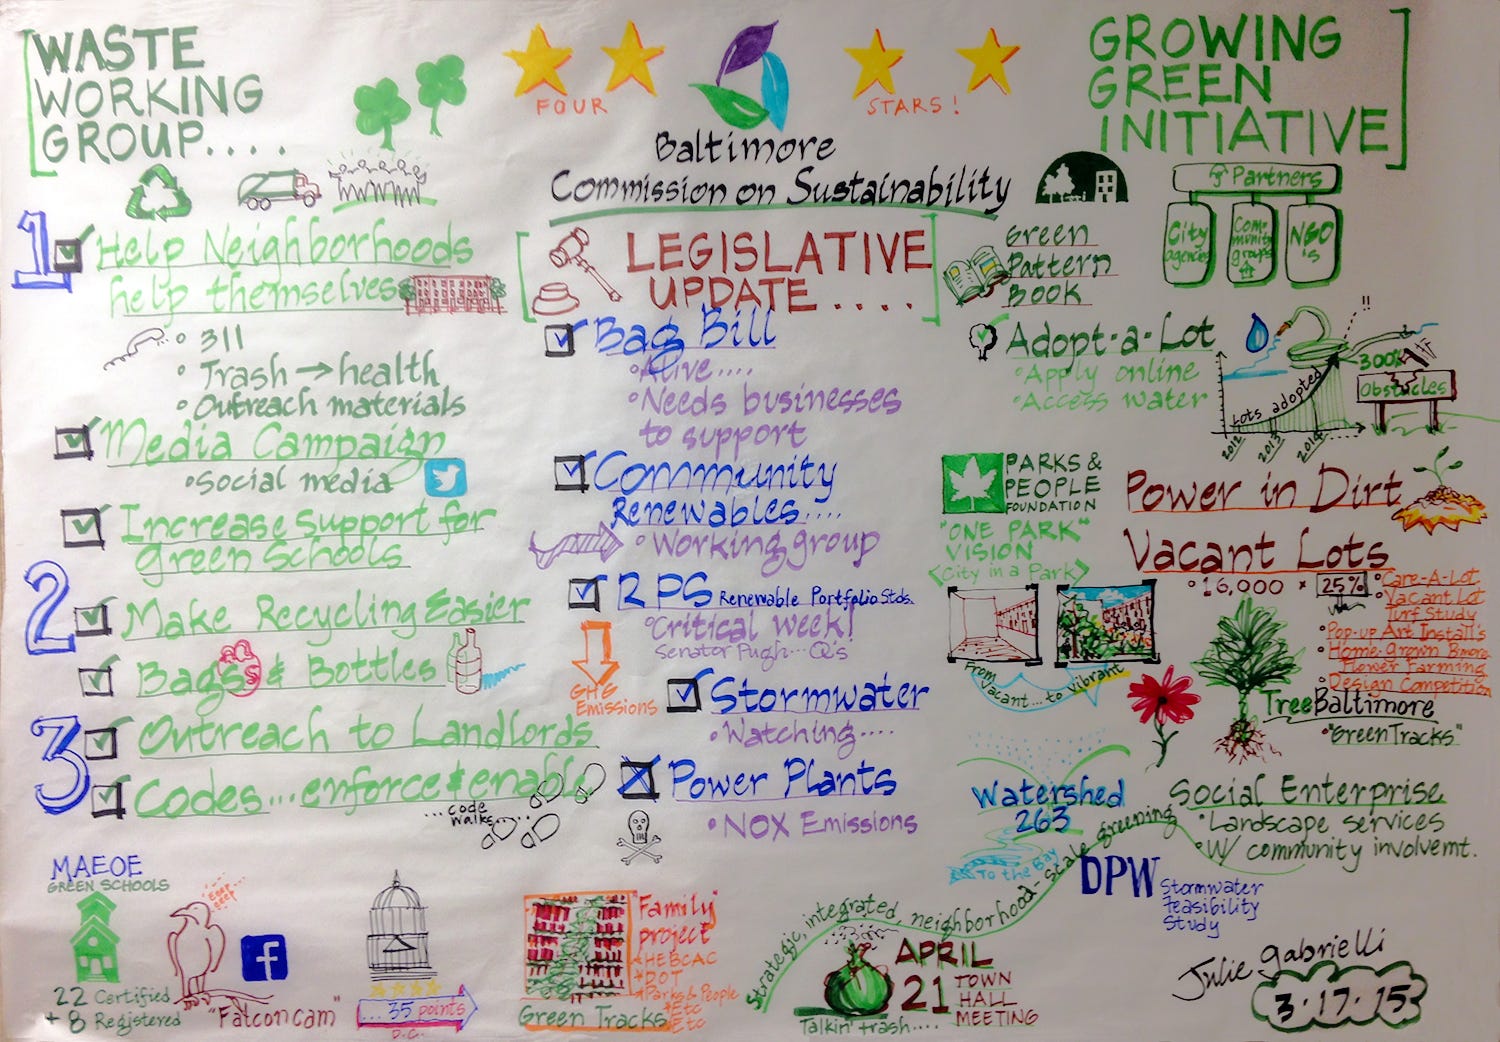 WASTE
WORKING
GROUP....
1
Help Neighborhoods
help themselves
311
Trash → health
Outreach materials
Media Campaign
Social media
Increase support for
Green Schools
2
Make Recycling Easier
Bags & Bottles
3
Outreach to Landlords
Codes...enforce & enable
...code
walks....
MAEOE
GREEN SCHOOLS
22 Certified
+ 8 Registered
"Falconcam"
f
...35 points
D.C.
FOUR
STARS!
Baltimore
Commission on Sustainability
LEGISLATIVE
UPDATE....
Bag Bill
Alive....
Needs businesses
to support
Community
Renewables....
Working group
RPS Renewable Portfolio Stds.
Critical week!
Senator Pugh...Q's
GHG
Emissions
Stormwater
Watching....
Power Plants
NOX Emissions
"Family"
project
*HEBCAC
*DOT
*Parks & People
*Etc
*Etc
Green Tracks
Strategic, integrated, neighborhood-scale greening
APRIL
21 TOWN
HALL
MEETING
Talkin' trash....
GROWING
GREEN
INITIATIVE
Partners
City
agencies
Com-
munity
groups
NGO
's
Green
Pattern
Book
Adopt-a-Lot
Apply online
Access water
Lots adopted
2012
2013
2014
300%
Obstacles
PARKS &
PEOPLE
FOUNDATION
"ONE PARK"
VISION
<City in a Park>
From
vacant...to vibrant
Power in Dirt
Vacant Lots
16,000 * 25%
Care-A-Lot
Vacant Lot
Turf Study
Pop-up Art Install's
Home-grown Bmore
Flower Farming
Design Competition
TreeBaltimore
"GreenTracks"
Watershed
263
To the Bay
Social Enterprise
Landscape services
W/ community involvemt.
DPW Stormwater
feasibility
Study
Julie Gabrielli
3·17·15